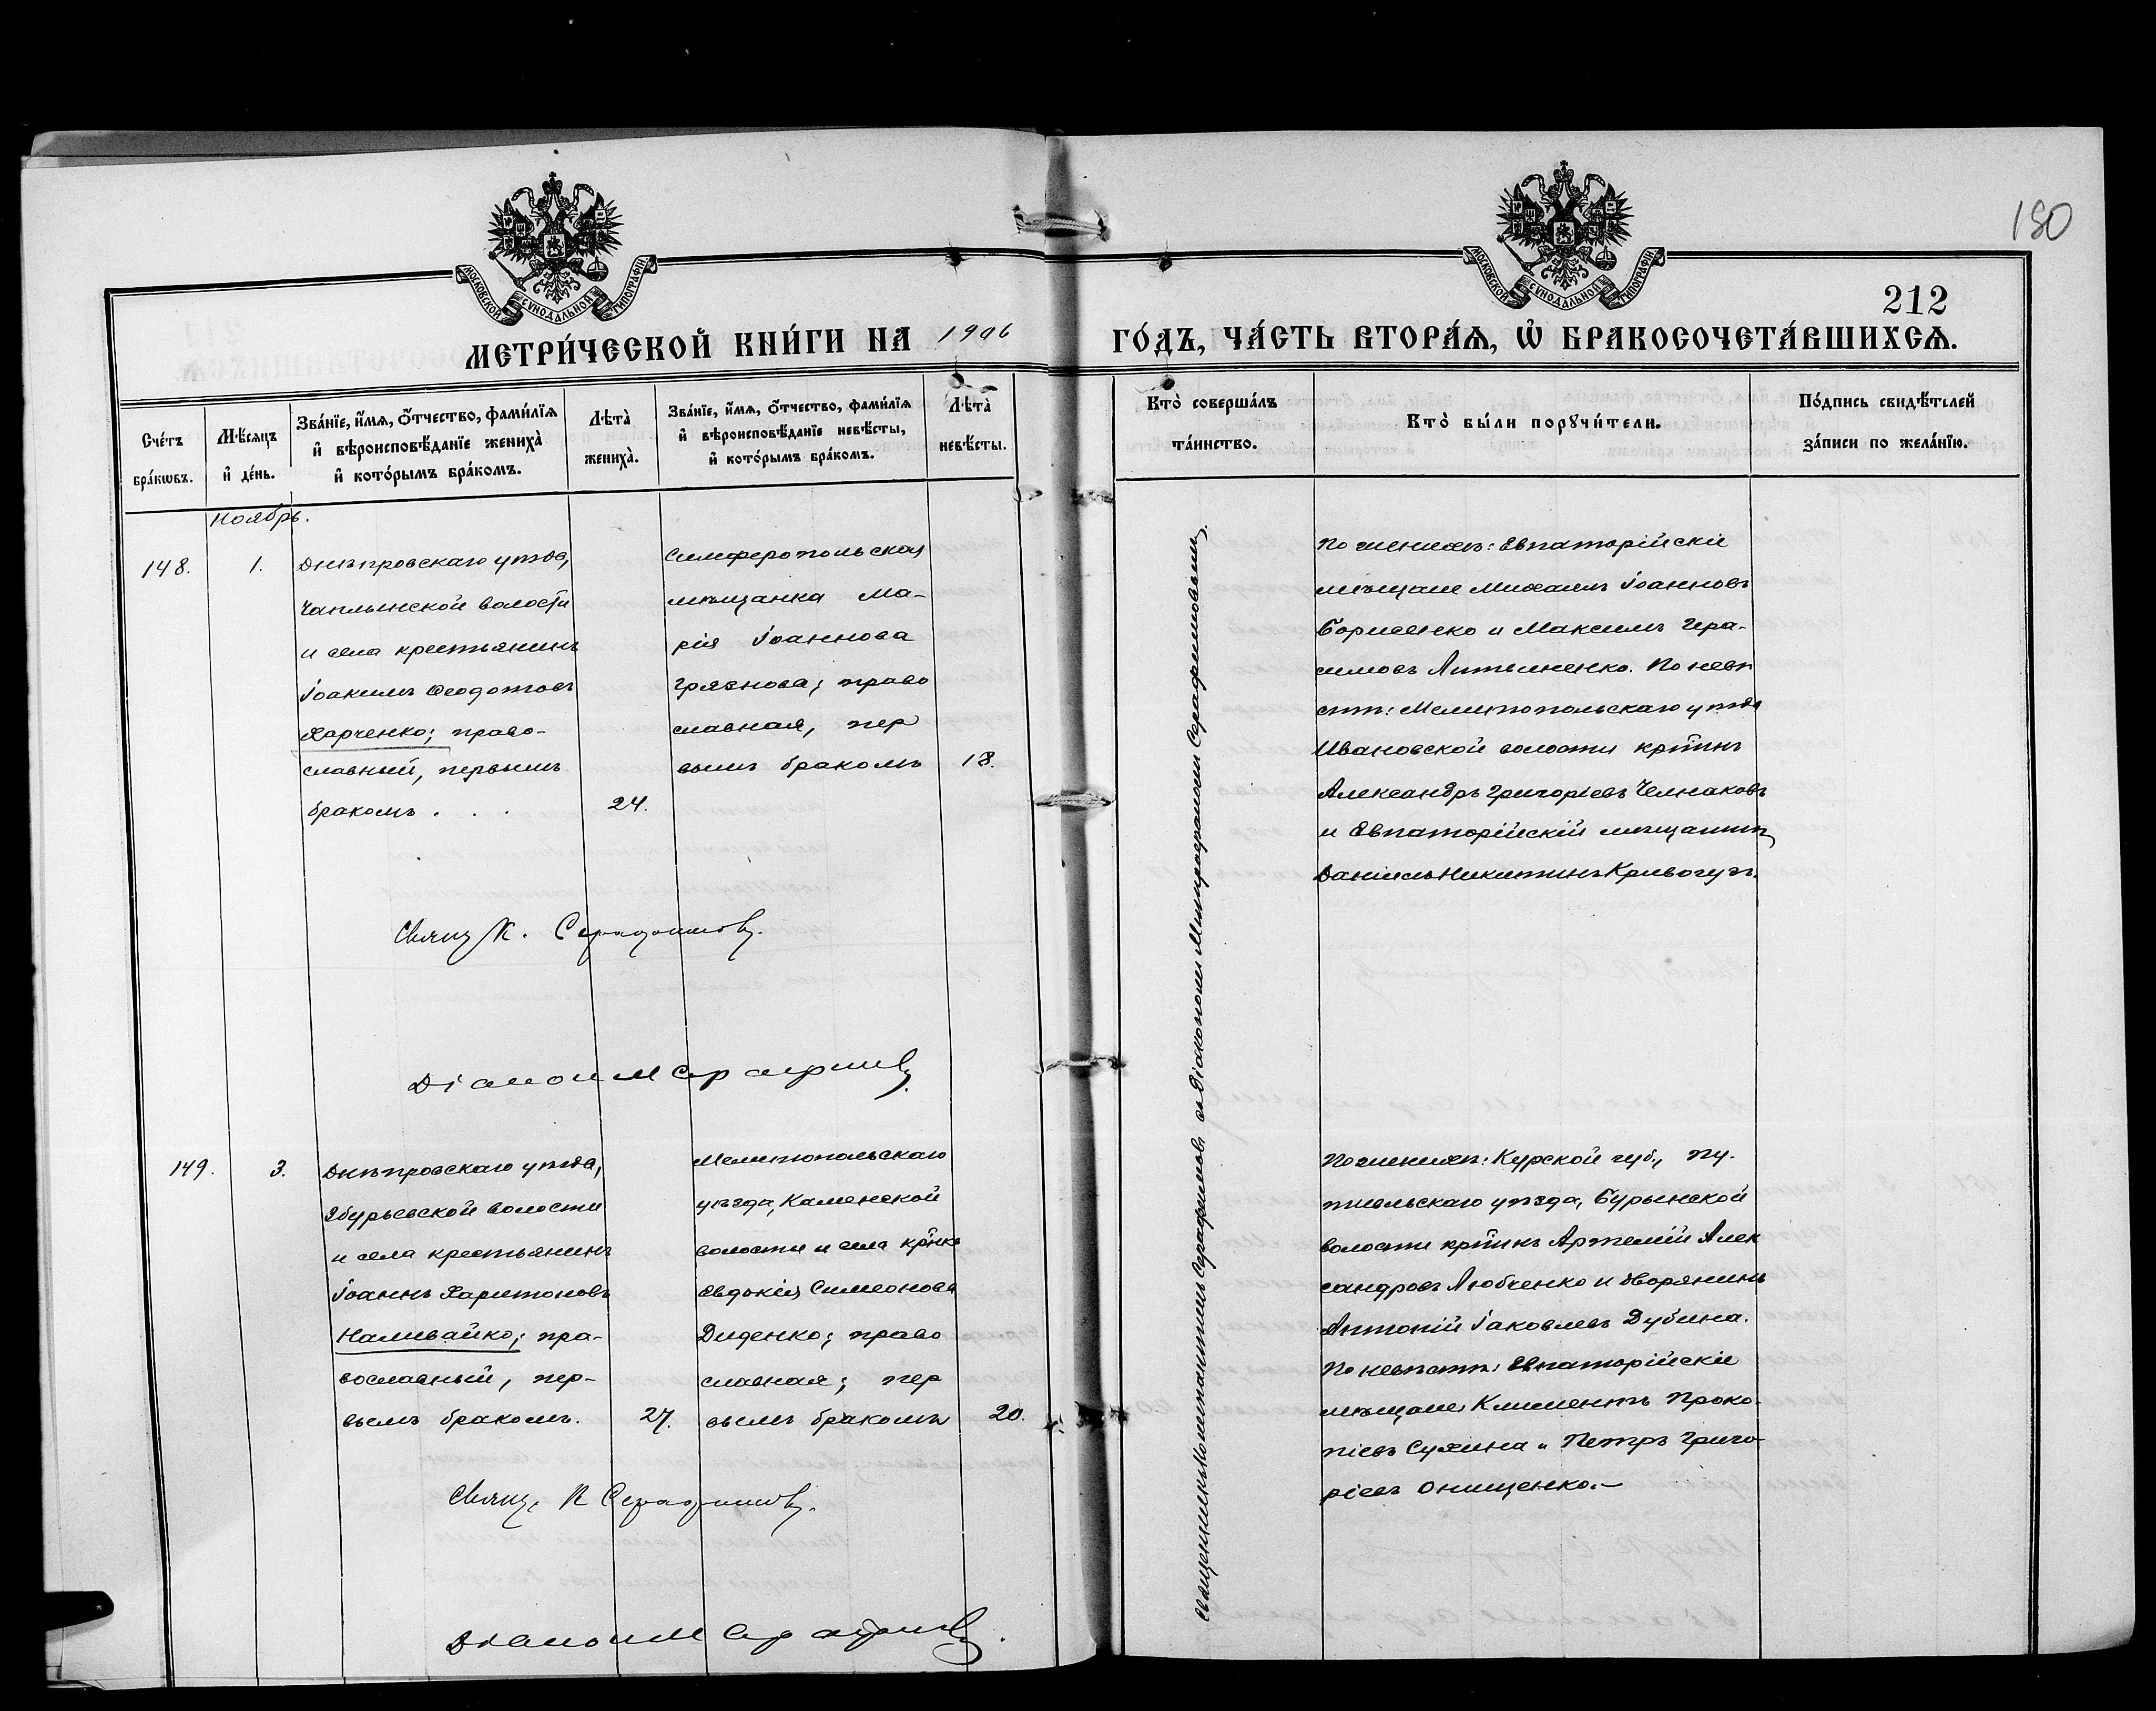 180
212
МОСКОВСКОЙ СѴНОДАЛЬНОЙ ТИПОГРАФІИ
МОСКОВСКОЙ СѴНОДАЛЬНОЙ ТИПОГРАФІИ
МЕТРИ́ЧЕСКОЙ КНИ́ГИ НА 1906 ГО́ДЪ, ЧА́СТЬ ВТОРА́Ѧ, Ѡ҆ БРАКОСОЧЕТА́ВШИХСѦ.
Сче́тъ
бра́кѡвъ.
Мѣ́сяцъ
и҆ де́нь.
Зва́нїе, и҆́мѧ, ѻ҆́тчество, фами́лїѧ
и҆ вѣроисповѣ́данїе жениха̀
и҆ кото́рымъ бра́комъ.
Лѣта̀
жениха̀.
Зва́нїе, и҆́мѧ, ѻ҆́тчество, фами́лїѧ
и҆ вѣроисповѣ́данїе невѣ́сты,
и҆ кото́рымъ бра́комъ.
Лѣта̀
невѣ́сты.
Кто̀ соверша́лъ
та́инство.
Кто̀ бы́ли порꙋчи́тели.
По́дпись свидѣ́телей
за́писи по жела́нїю.
Ноябрь.
148.
1.
Днѣпровскаго уѣзда,
Чаплынской волости
и села крестьянинъ
Іоакимъ Ѳеодотовъ
Харченко; право-
славный, первымъ
бракомъ . . .
24.
Симферопольская
мѣщанка Ма-
рія Іоаннова
Грязнова; право
славная, пер
вымъ бракомъ
18.
Священникъ Константинъ Серафимовъ съ Діакономъ Митрофаномъ Серафимовымъ.
По женихѣ: Евпаторійскіе
мѣщане Михаилъ Іоанновъ
Борисенко и Максимъ Гера-
симовъ Литвиненко. По невѣ
стѣ: Мелитопольскаго уѣзда
Ивановской волости кр̃тинъ
Александръ Григоріевъ Челнаковъ
и Евпаторійскій мѣщанинъ
Даніилъ Никитинъ Кривогузъ.
Свящ. К. Серафимовъ.
Діаконъ М Серафимовъ.
149.
3.
Днѣпровскаго уѣзда,
Збурьевской волости
и села крестьянинъ
Іоаннъ Харитоновъ
Наливайко; пра-
вославный, пер-
вымъ бракомъ.
27.
Мелитопольскаго
уѣзда, Каменской
волости и села кр̃нка
Евдокія Симеонова
Диденко; право
славная; пер
вымъ бракомъ
20.
По женихѣ: Курской губ., Пу-
тивльскаго уѣзда, Бурынской
волости кр̃тинъ Артемій Алек
сандровъ Любченко и дворянинъ
Антоній Іаковлевъ Дубина.
По невѣстѣ: Евпаторійскіе
мѣщане, Климентъ Проко-
піевъ Сухина и Петръ Григо-
ріевъ Онищенко.—
Свящ. К Серафимовъ.
Діаконъ М Серафимовъ.